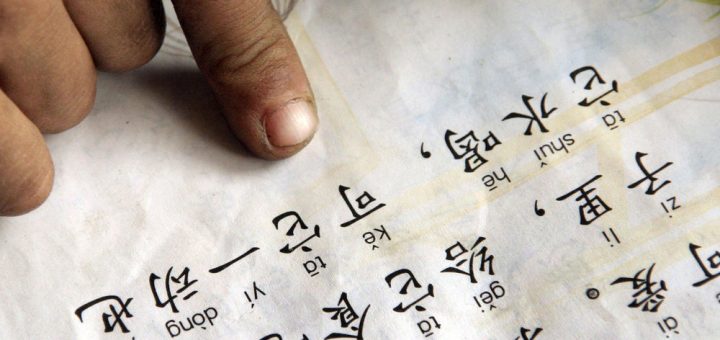 ài
可爱。
zi lǐ gěi tā
子里，给它食
tā shuǐ hē kě tā yí dòng
它水喝，可它一动也